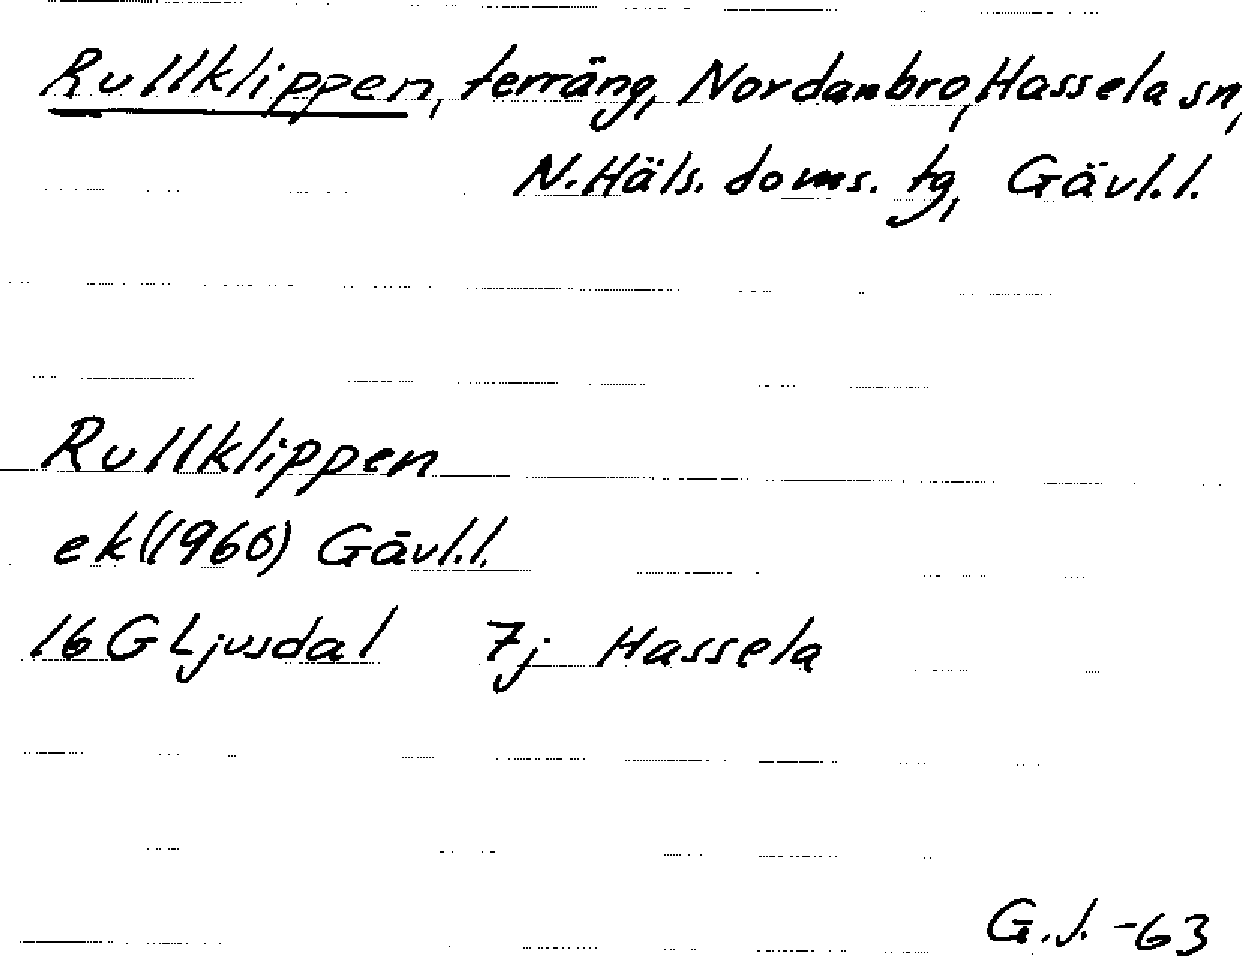 Rullklippen, terräng, Nordanbro, Hassela sn,
N. Häls. doms. tg, Gävl.l.
Rullklippen
ek (1960) Gävl.l.
16G Ljusdal 7j Hassela
G.J. -63